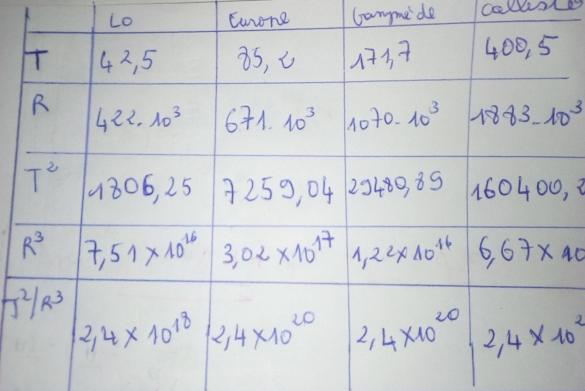 Lo Europe Ganymède Callisto
T 42,5 85,2 171,7 400,5
R 422.10³ 671.10³ 1070.10³ 1883.10³
T² 1806,25 7259,04 29480,89 160400,2
R³ 7,51×10¹⁶ 3,02×10¹⁷ 1,22×10¹⁶ 6,67×10
T²/R³ 2,4×10¹⁸ 2,4×10²⁰ 2,4×10²⁰ 2,4×10²